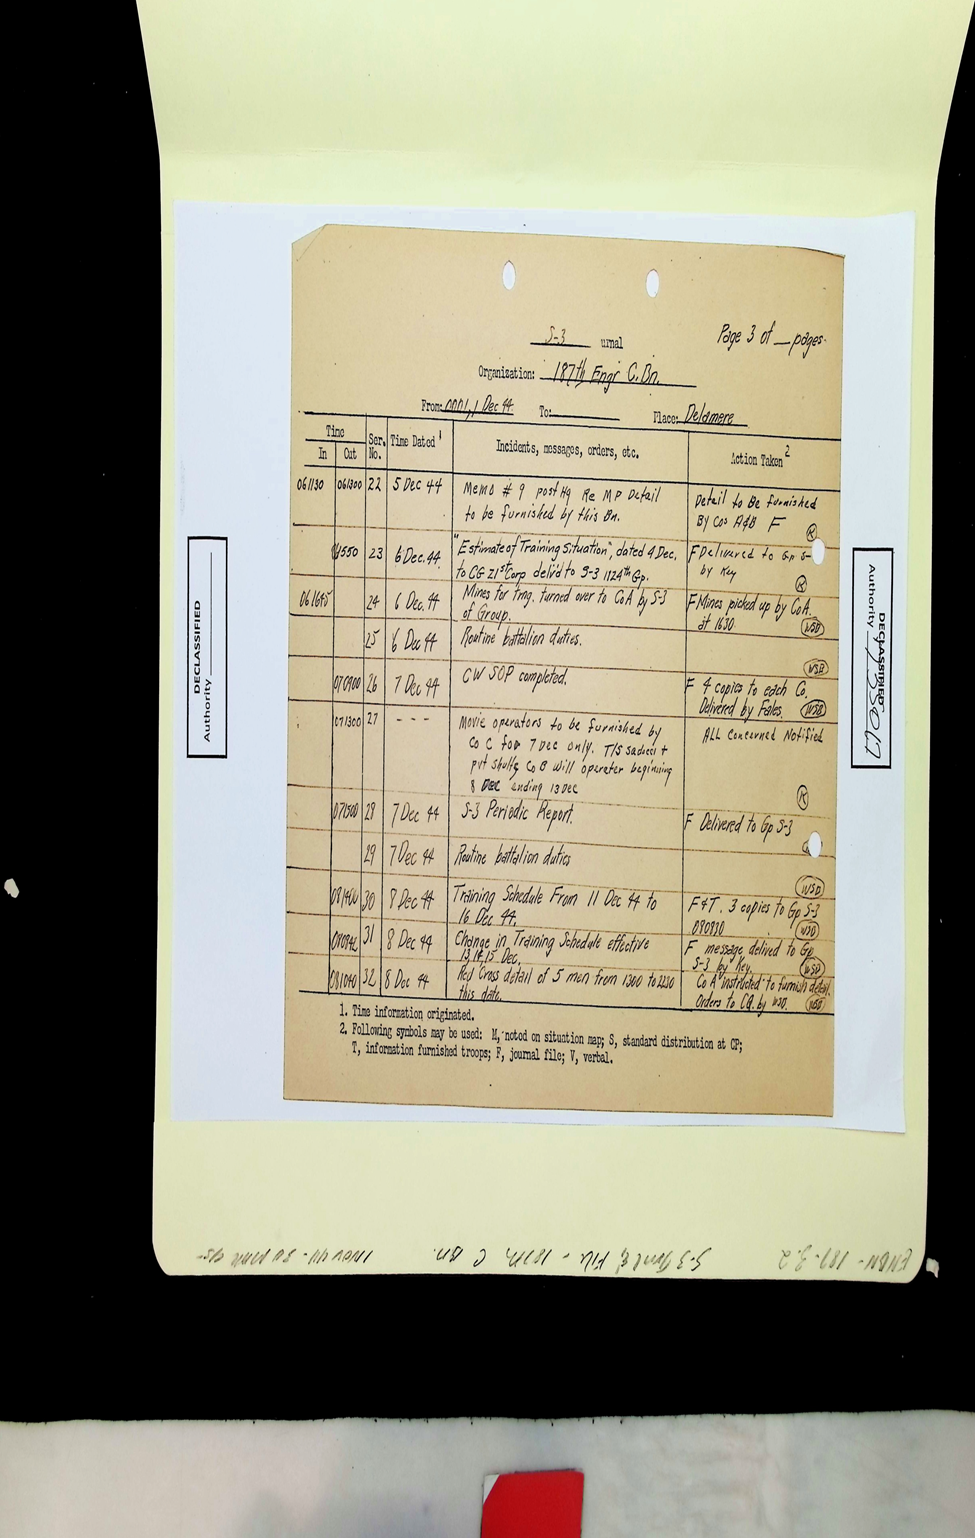 S-3 urnal
Page 3 of __ pages.
Organization: 187th Engr C. Bn.
From: 0001, 1 Dec 44 To: Place: Delamere
Time
In Out Ser. No. Time Dated 1 Incidents, messages, orders, etc. Action Taken 2
061130 061300 22 5 Dec 44 Memo # 9 post Hq Re MP Detail Detail to Be furnished
to be furnished by this Bn. By Cos A&B F K
1550 23 6 Dec. 44 "Estimate of Training Situation", dated 4 Dec. F Delivered to Gp S-
to CG 21st Corp deliv'd to S-3 1124th Gp. by Key K
061645 24 6 Dec. 44 Mines for trng. turned over to Co A by S-3 F Mines picked up by Co A.
of Group. at 1630 WSD
25 6 Dec 44 Routine battalion duties.
WSD
070900 26 7 Dec 44 CW SOP completed. F 4 copies to each Co.
Delivered by Fales. WSD
071300 27 - - - Movie operators to be furnished by ALL Concerned Notified
Co C for 7 Dec only. T/5 &
pvt Co B will operater beginning
8 Dec ending 13 Dec K
071500 29 7 Dec 44 S-3 Periodic Report. F Delivered to Gp S-3
29 7 Dec 44 Routine battalion duties
WSD
30 8 Dec 44 Training Schedule From 11 Dec 44 to F&T. 3 copies to Gp S-3
16 Dec 44. WSD
31 8 Dec 44 Change in Training Schedule effective F message delived to Gp
13, 14, 15 Dec. S-3 by Key. WSD
081040 32 8 Dec 44 Red Cross detail of 5 men from 1300 to 2230 Co A instructed to furnish detail.
this date. Orders to CQ. by WSD. WSD
1. Time information originated.
2. Following symbols may be used: M, noted on situation map; S, standard distribution at CP;
T, information furnished troops; F, journal file; V, verbal.
DECLASSIFIED
Authority
DECLASSIFIED
Authority
ENBN - 187-3.2 S-3 Jnl & File - 187th C Bn. 1 Nov 44 - 30 Mar 45